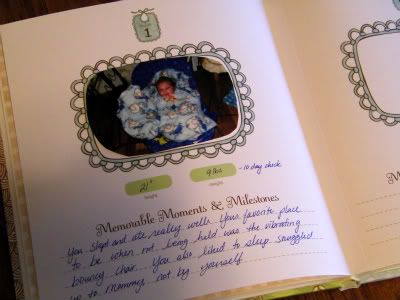 1
21"
9 lbs
- 10 day check
height
weight
Memorable Moments & Milestones
You slept and ate really well. Your favorite place
to be when not being held was the vibrating
bouncy chair. You also liked to sleep snuggled
up to mommy, not by yourself
M